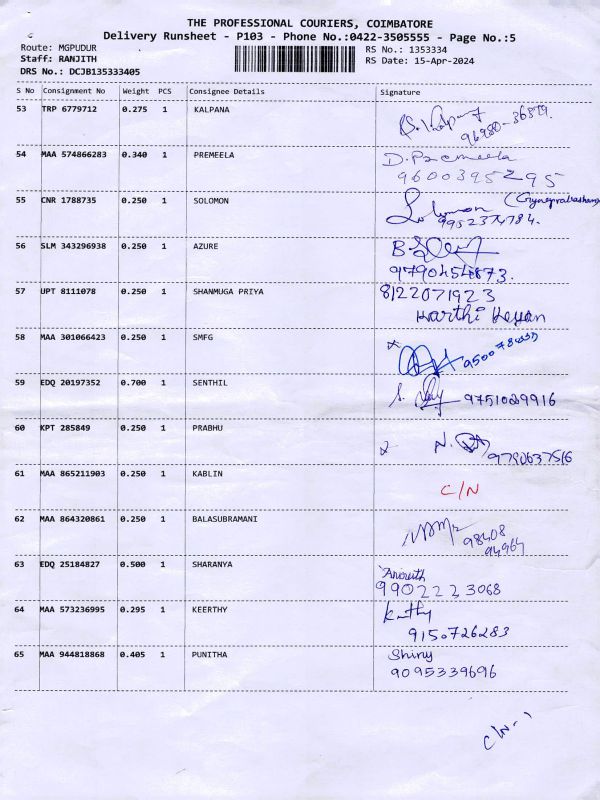 THE PROFESSIONAL COURIERS, COIMBATORE
Delivery Runsheet - P103 - Phone No.:0422-3505555 - Page No.:5
Route: MGPUDUR RS No.: 1353334
Staff: RANJITH RS Date: 15-Apr-2024
DRS No.: DCJB135333405
S No Consignment No Weight PCS Consignee Details Signature
53 TRP 6779712 0.275 1 KALPANA
96980-36879.
54 MAA 574866283 0.340 1 PREMEELA D.Premeela
9600395295
55 CNR 1788735 0.250 1 SOLOMON Solomon
9952374784.
56 SLM 343296938 0.250 1 AZURE
9790454873.
57 UPT 8111078 0.250 1 SHANMUGA PRIYA 8122071923
Karthi Keyan
58 MAA 301066423 0.250 1 SMFG
59 EDQ 20197352 0.700 1 SENTHIL S. 9751029916
60 KPT 285849 0.250 1 PRABHU N.
9790637516
61 MAA 865211903 0.250 1 KABLIN
C/N
62 MAA 864320861 0.250 1 BALASUBRAMANI
98408
94964
63 EDQ 25184827 0.500 1 SHARANYA
9902223068
64 MAA 573236995 0.295 1 KEERTHY
9150726283
65 MAA 944818868 0.405 1 PUNITHA Shiny
9095339696
C/N-1